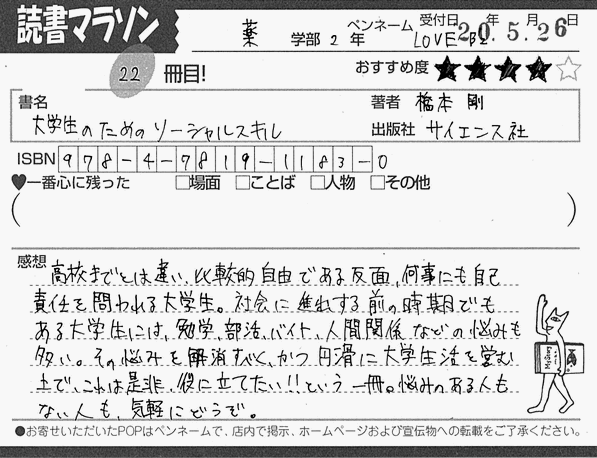 読書マラソン
薬 学部 2 年
ペンネーム LOVE B2
受付日 20年.5月.26日
22 冊目!
おすすめ度 ★★★★☆
書名 大学生のためのソーシャルスキル
著者 橋本 剛
出版社 サイエンス社
ISBN 978-4-7819-1183-0
♥一番心に残った □場面 □ことば □人物 □その他
( )
感想
高校までとは違い、比較的自由である反面、何事にも自己
責任を問われる大学生。社会に進れする前の時期でも
ある大学生には、勉学、部活、バイト、人間関係などの悩みも
多い。その悩みを解消すべく、かつ円滑に大学生活を営む
上で、これは是非、役に立てたい!!という一冊。悩みのある人も
ない人も、気軽にどうぞ。
●お寄せいただいたPOPはペンネームで、店内で掲示、ホームページおよび宣伝物への転載をご了承ください。